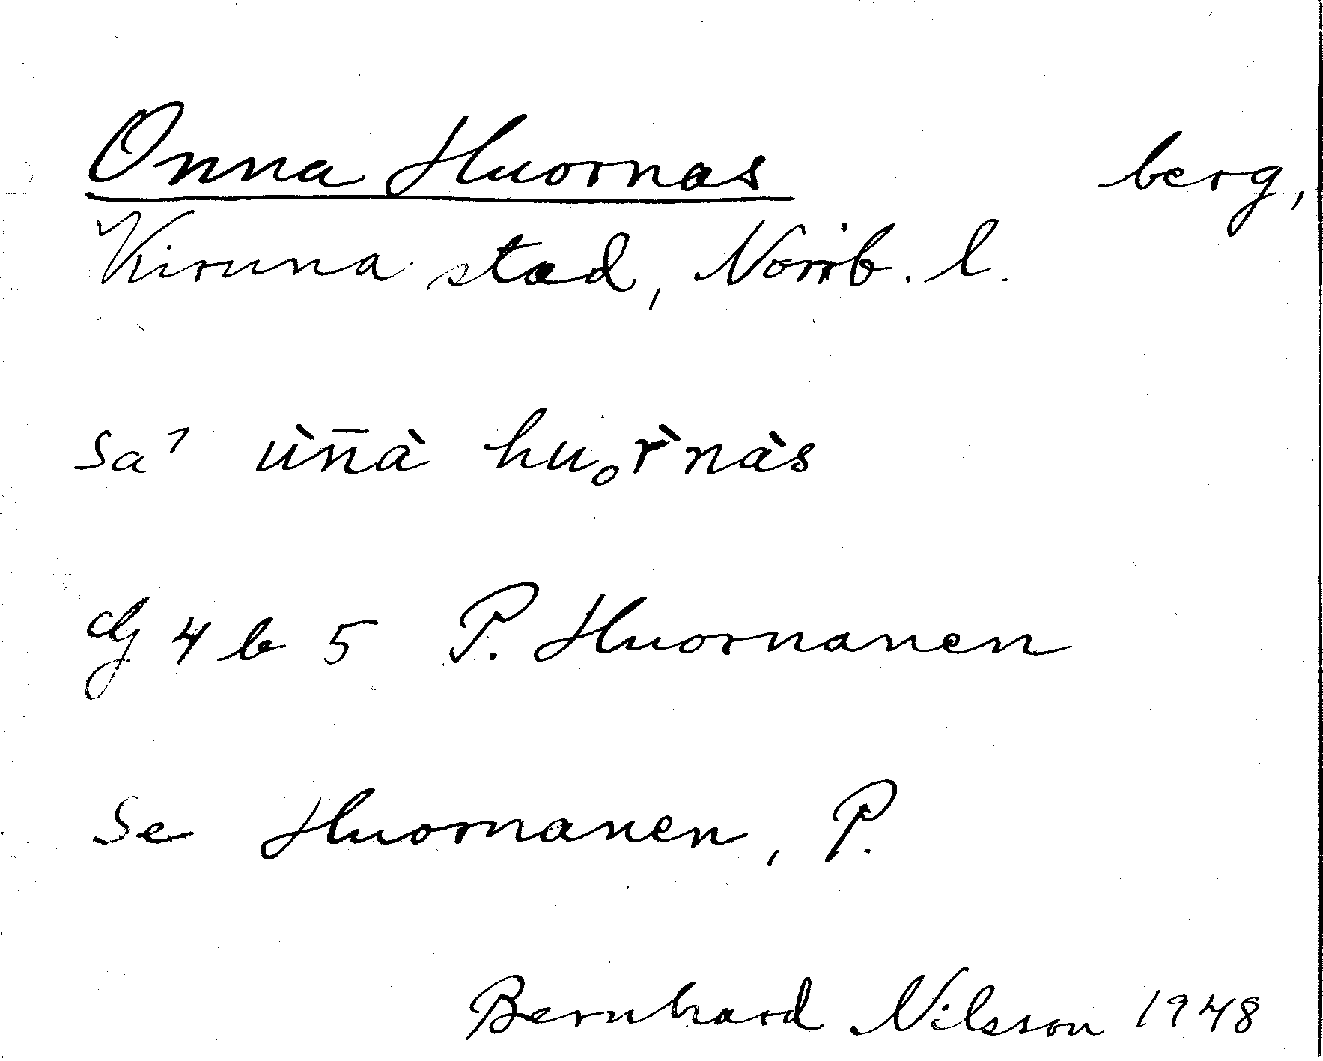 Onna Huornas berg,
Kiruna stad, Norrb. l.
sa' ùn̄à huₒr̀nàs
dg 4 b 5 P. Huornanen
Se Huornanen, P.
Bernhard Nilsson 1948